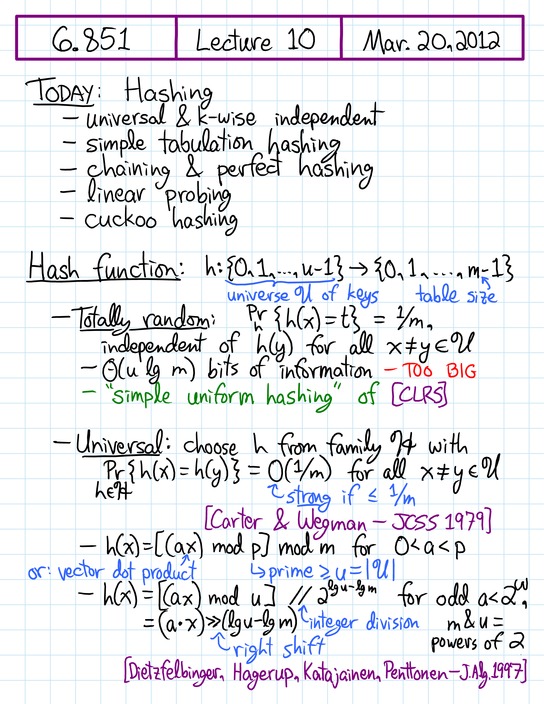 6.851 Lecture 10 Mar. 20, 2012
TODAY: Hashing
– universal & k-wise independent
– simple tabulation hashing
– chaining & perfect hashing
– linear probing
– cuckoo hashing
Hash function: h: {0,1,...,u-1} → {0,1,...,m-1}
universe 𝒰 of keys table size
– Totally random: Pr_h {h(x)=t} = 1/m,
independent of h(y) for all x≠y∈𝒰
– Θ(u lg m) bits of information – TOO BIG
– "simple uniform hashing" of [CLRS]
– Universal: choose h from family ℋ with
Pr_{h∈ℋ} {h(x)=h(y)} = O(1/m) for all x≠y∈𝒰
strong if ≤ 1/m
[Carter & Wegman – JCSS 1979]
– h(x)=[(ax) mod p] mod m for 0<a<p
or: vector dot product ↳ prime ≥ u=|𝒰|
– h(x)=[(ax) mod u] // 2^{lg u-lg m} for odd a<2^w,
= (a·x)≫(lg u-lg m) integer division m & u =
right shift powers of 2
[Dietzfelbinger, Hagerup, Katajainen, Penttonen – J.Alg. 1997]